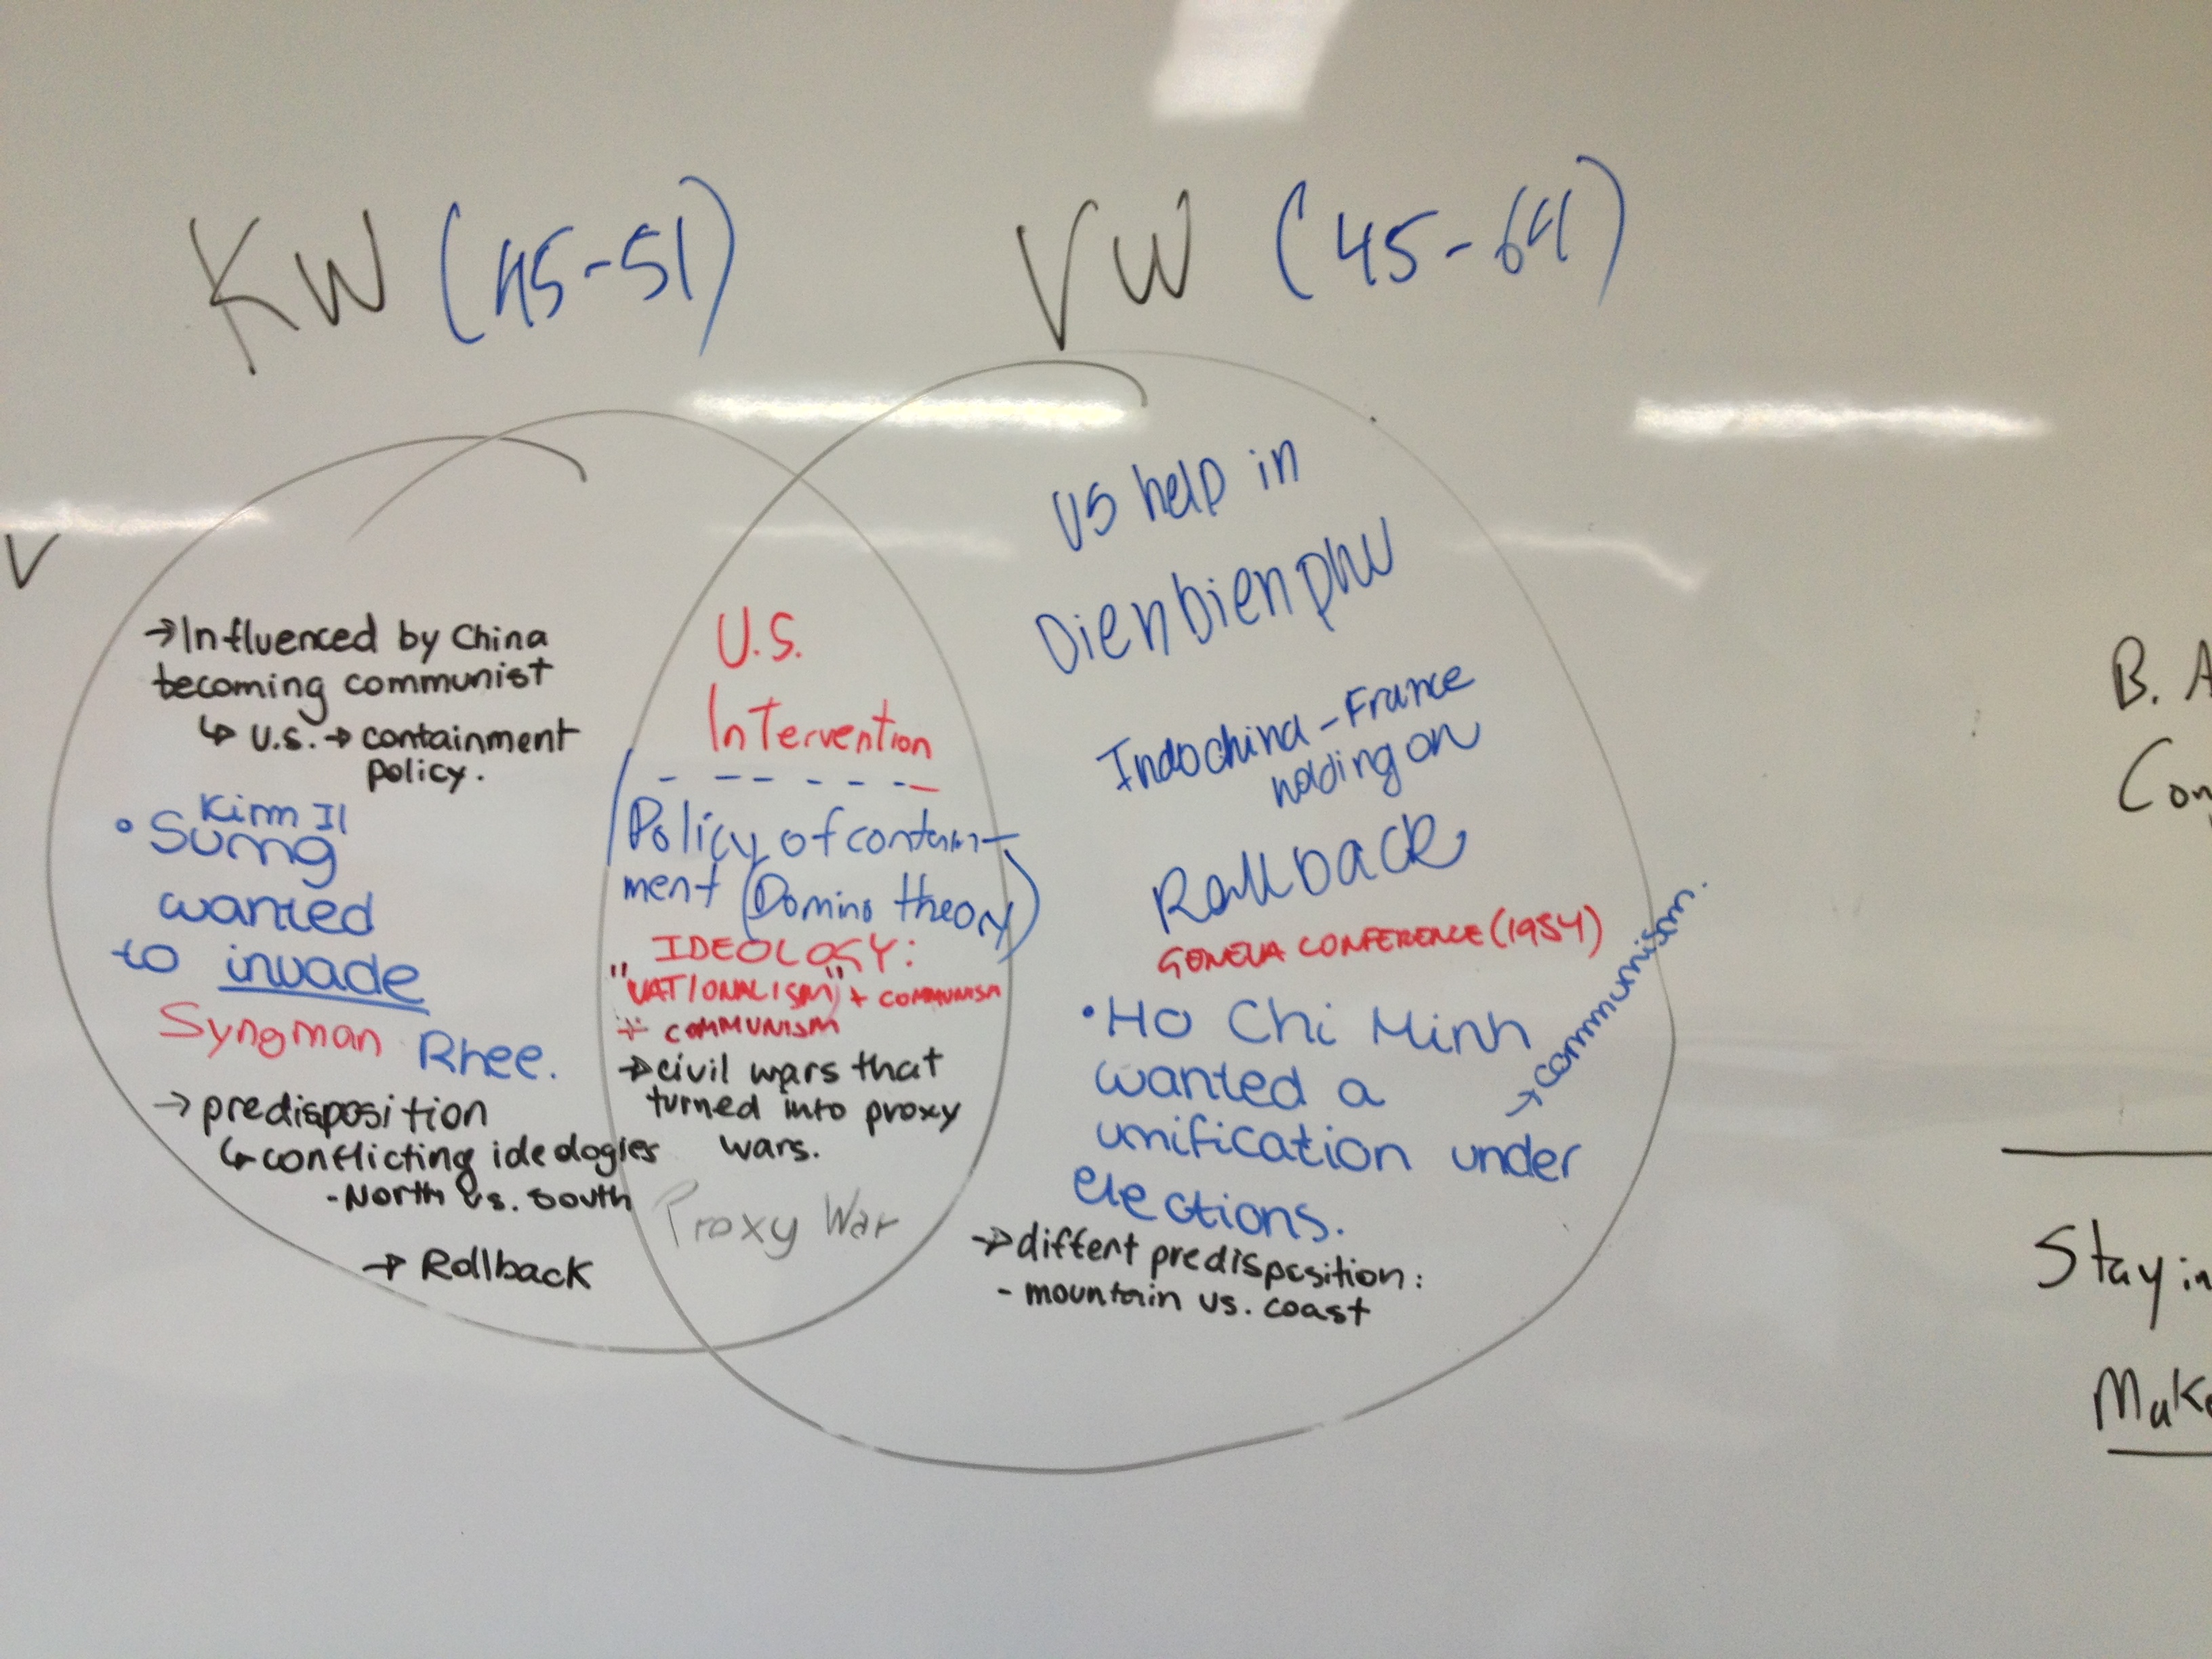 KW (45-51)
VW (45-64)
V
→Influenced by China
becoming communist
↳ U.S. → containment
policy.
Kim Il
• Sung
wanted
to invade
Syngman Rhee.
→ predisposition
↳ conflicting ideologies
- North vs. South
→ Rollback
U.S.
Intervention
Policy of contain-
ment (Domino theory)
IDEOLOGY:
"NATIONALISM" + COMMUNISM
+ COMMUNISM
→ civil wars that
turned into proxy
wars.
Proxy War
US help in
Dienbienphu
Indochina - France
holding on
Rollback
GENEVA CONFERENCE (1954)
• Ho Chi Minh
wanted a
unification under
elections.
→ communism.
→ diffent predisposition:
- mountain vs. coast
B. A
Con
Stay in
Make